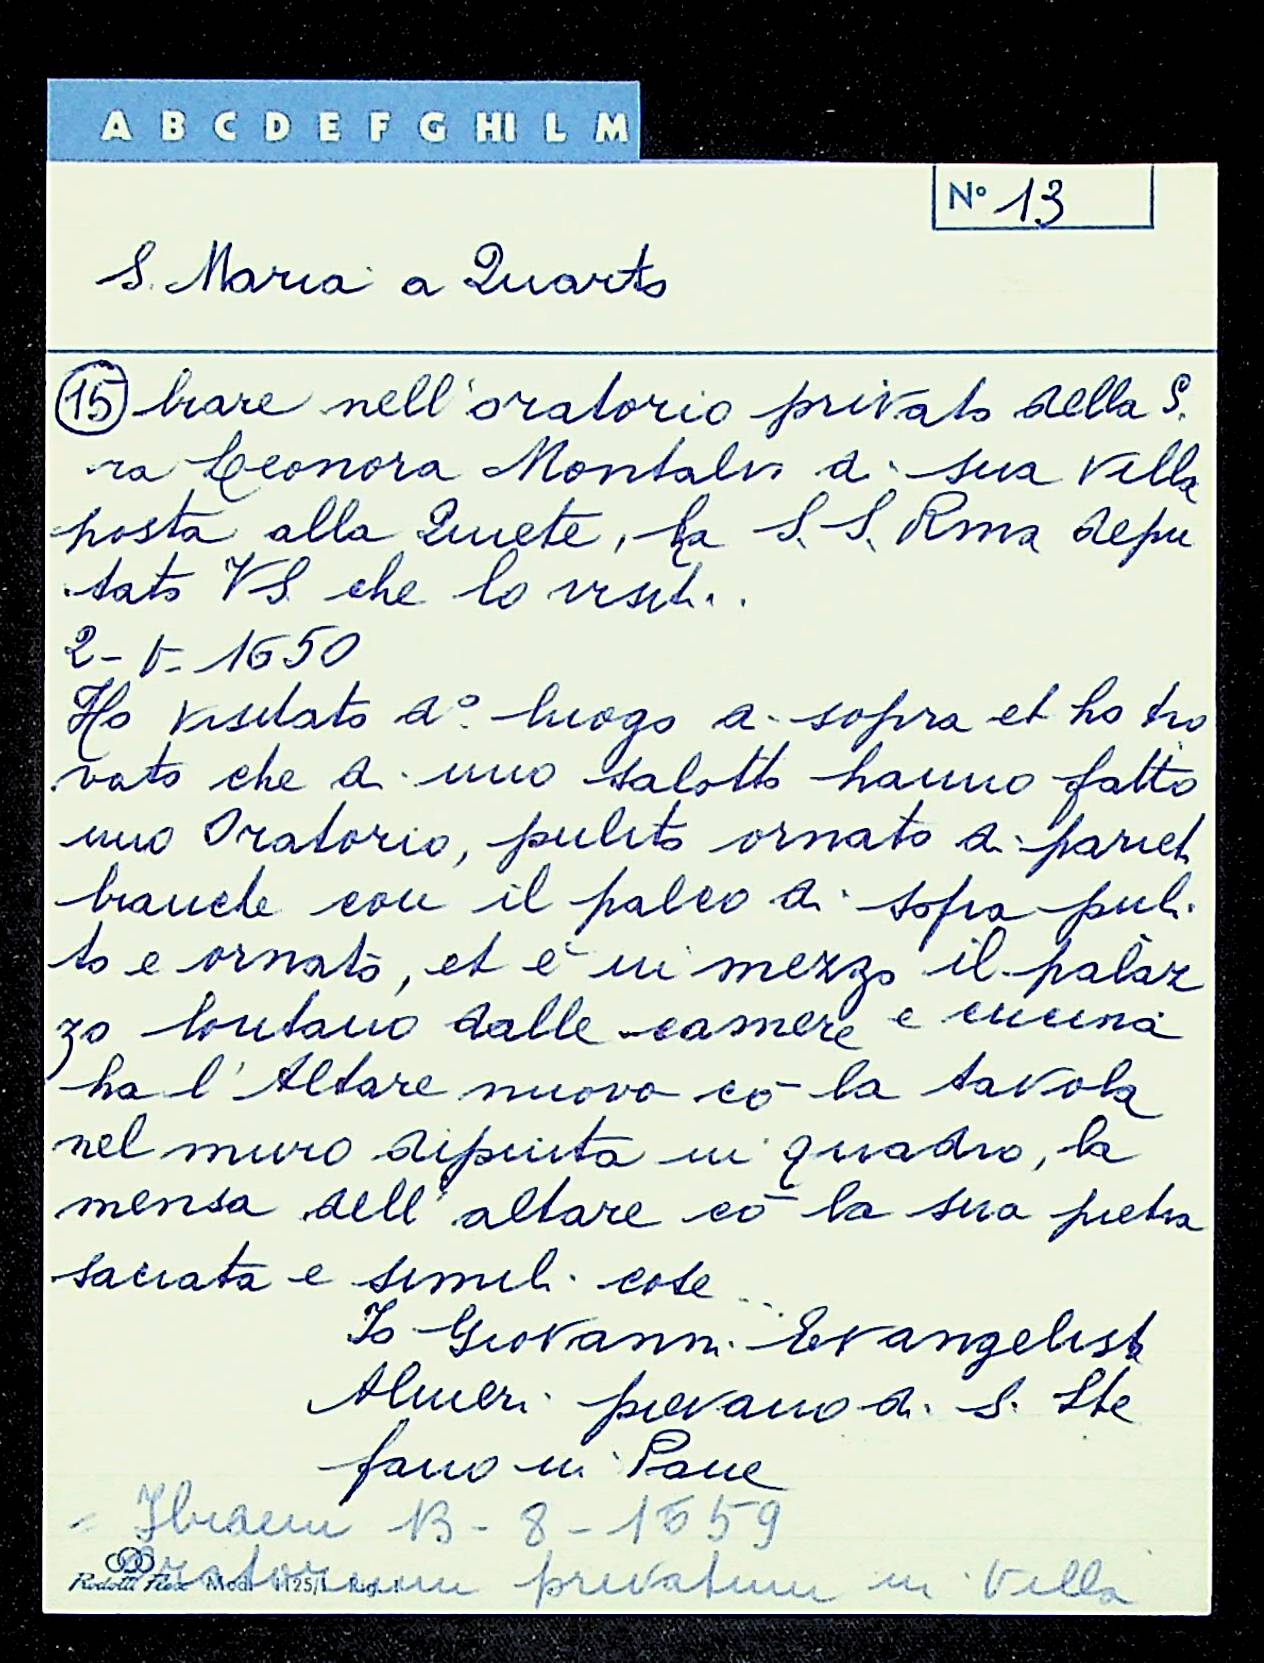 A B C D E F G HI L M
N° 13
S. Maria a Quarto
15 brare nell'oratorio privato della S.
ra Leonora Montalvi di sua villa
posta alla Quiete, ha S. S. Rma depu
tato VS. che lo visiti..
2 - V - 1650
Ho visitato d° luogo di sopra et ho tro
vato che di uno salotto hanno fatto
uno Oratorio, pulito ornato di pareti
bianche con il palco di sopra puli
to e ornato, et è in mezzo il palaz
zo lontano dalle camere e cucina
ha l'Altare nuovo cō la tavola
nel muro dipinta in quadro, la
mensa dell'altare cō la sua pietra
sacrata e simili cose ...
Io Giovanni Evangelista
Almeri pievano di S. Ste
fano in Pane
= Ibidem 13 - 8 - 1659
Oratorium privatum in Villa